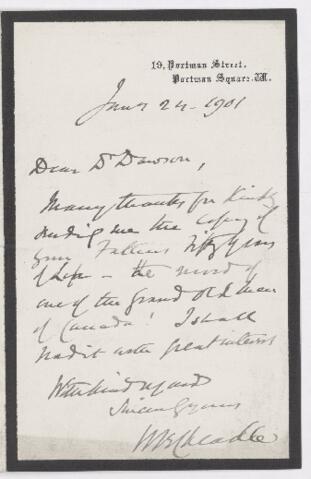 19, Portman Street,
Portman Square. W.
Jany 24. 1901
Dear Dr Dawson,
Many thanks for kindly
sending me the copy of
your Father's Fifty years
of Life - the record of
one of the Grand Old Men
of Canada! I shall
read it with great interest
With kind regards
Sincerely yours
W B Cheadle